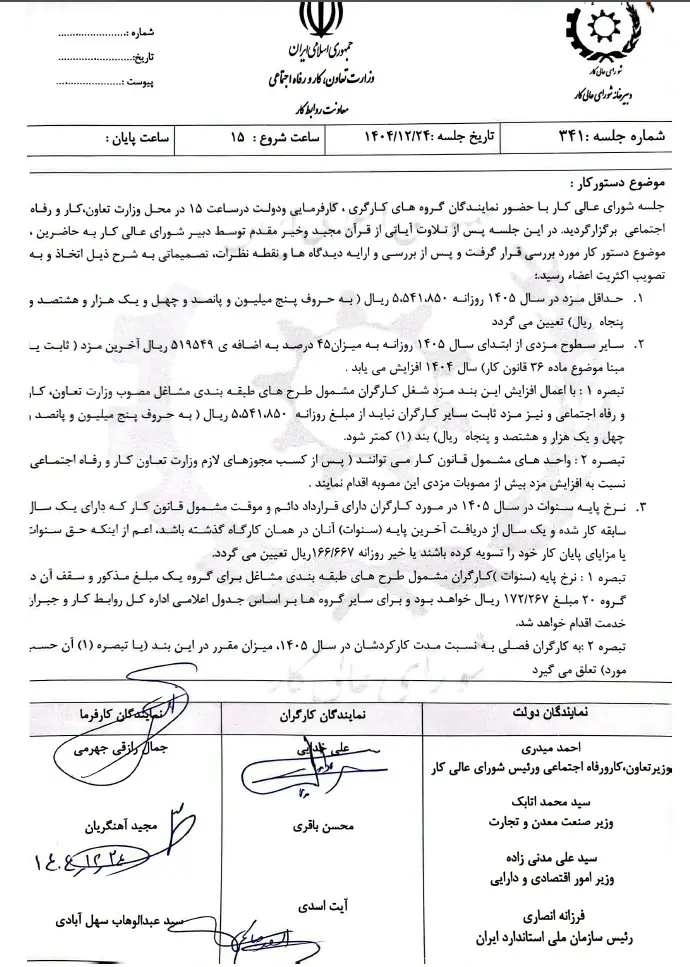 شماره :
تاریخ:
پیوست :
جمهوری اسلامی ایران
وزارت تعاون، کار و رفاه اجتماعی
معاونت روابط کار
شورای عالی کار
دبیرخانه شورای عالی کار
شماره جلسه :۳۴۱
تاریخ جلسه :۱۴۰۴/۱۲/۲۴
ساعت شروع : ۱۵
ساعت پایان :
موضوع دستورکار :
جلسه شورای عالی کار با حضور نمایندگان گروه های کارگری ، کارفرمایی ودولت درساعت ۱۵ در محل وزارت تعاون،کار و رفاه
اجتماعی برگزارگردید. در این جلسه پس از تلاوت آیاتی از قرآن مجید وخیر مقدم توسط دبیر شورای عالی کار به حاضرین ،
موضوع دستور کار مورد بررسی قرار گرفت و پس از بررسی و ارایه دیدگاه ها و نقطه نظرات، تصمیماتی به شرح ذیل اتخاذ و به
تصویب اکثریت اعضاء رسید.:
۱. حداقل مزد در سال ۱۴۰۵ روزانه ۵،۵۴۱،۸۵۰ ریال ( به حروف پنج میلیون و پانصد و چهل و یک هزار و هشتصد و
پنجاه ریال) تعیین می گردد
۲. سایر سطوح مزدی از ابتدای سال ۱۴۰۵ روزانه به میزان۴۵ درصد به اضافه ی ۵۱۹۵۴۹ ریال آخرین مزد ( ثابت یا
مبنا موضوع ماده ۳۶ قانون کار) سال ۱۴۰۴ افزایش می یابد .
تبصره ۱ : با اعمال افزایش این بند مزد شغل کارگران مشمول طرح های طبقه بندی مشاغل مصوب وزارت تعاون، کار
و رفاه اجتماعی و نیز مزد ثابت سایر کارگران نباید از مبلغ روزانه ۵،۵۴۱،۸۵۰ ریال ( به حروف پنج میلیون و پانصد و
چهل و یک هزار و هشتصد و پنجاه ریال) بند (۱) کمتر شود.
تبصره ۲ : واحد های مشمول قانون کار می توانند ( پس از کسب مجوزهای لازم وزارت تعاون کار و رفاه اجتماعی)
نسبت به افزایش مزد بیش از مصوبات مزدی این مصوبه اقدام نمایند .
۳. نرخ پایه سنوات در سال ۱۴۰۵ در مورد کارگران دارای قرارداد دائم و موقت مشمول قانون کار که دارای یک سال
سابقه کار شده و یک سال از دریافت آخرین پایه (سنوات) آنان در همان کارگاه گذشته باشد، اعم از اینکه حق سنوات
یا مزایای پایان کار خود را تسویه کرده باشند یا خیر روزانه ۱۶۶/۶۶۷ریال تعیین می گردد.
تبصره ۱ : نرخ پایه (سنوات )کارگران مشمول طرح های طبقه بندی مشاغل برای گروه یک مبلغ مذکور و سقف آن در
گروه ۲۰ مبلغ ۱۷۲/۲۶۷ ریال خواهد بود و برای سایر گروه ها بر اساس جدول اعلامی اداره کل روابط کار و جبران
خدمت اقدام خواهد شد.
تبصره ۲ :به کارگران فصلی به نسبت مدت کارکردشان در سال ۱۴۰۵، میزان مقرر در این بند (یا تبصره (۱) آن حسب
مورد) تعلق می گیرد
شورای عالی کار
نمایندگان دولت
نمایندگان کارگران
نمایندگان کارفرما
احمد میدری
وزیرتعاون،کارورفاه اجتماعی ورئیس شورای عالی کار
علی خدایی
جمال رازقی جهرمی
سید محمد اتابک
وزیر صنعت معدن و تجارت
محسن باقری
مجید آهنگریان
۱۴۰۴/۱۲/۲۴
سید علی مدنی زاده
وزیر امور اقتصادی و دارایی
آیت اسدی
سید عبدالوهاب سهل آبادی
فرزانه انصاری
رئیس سازمان ملی استاندارد ایران